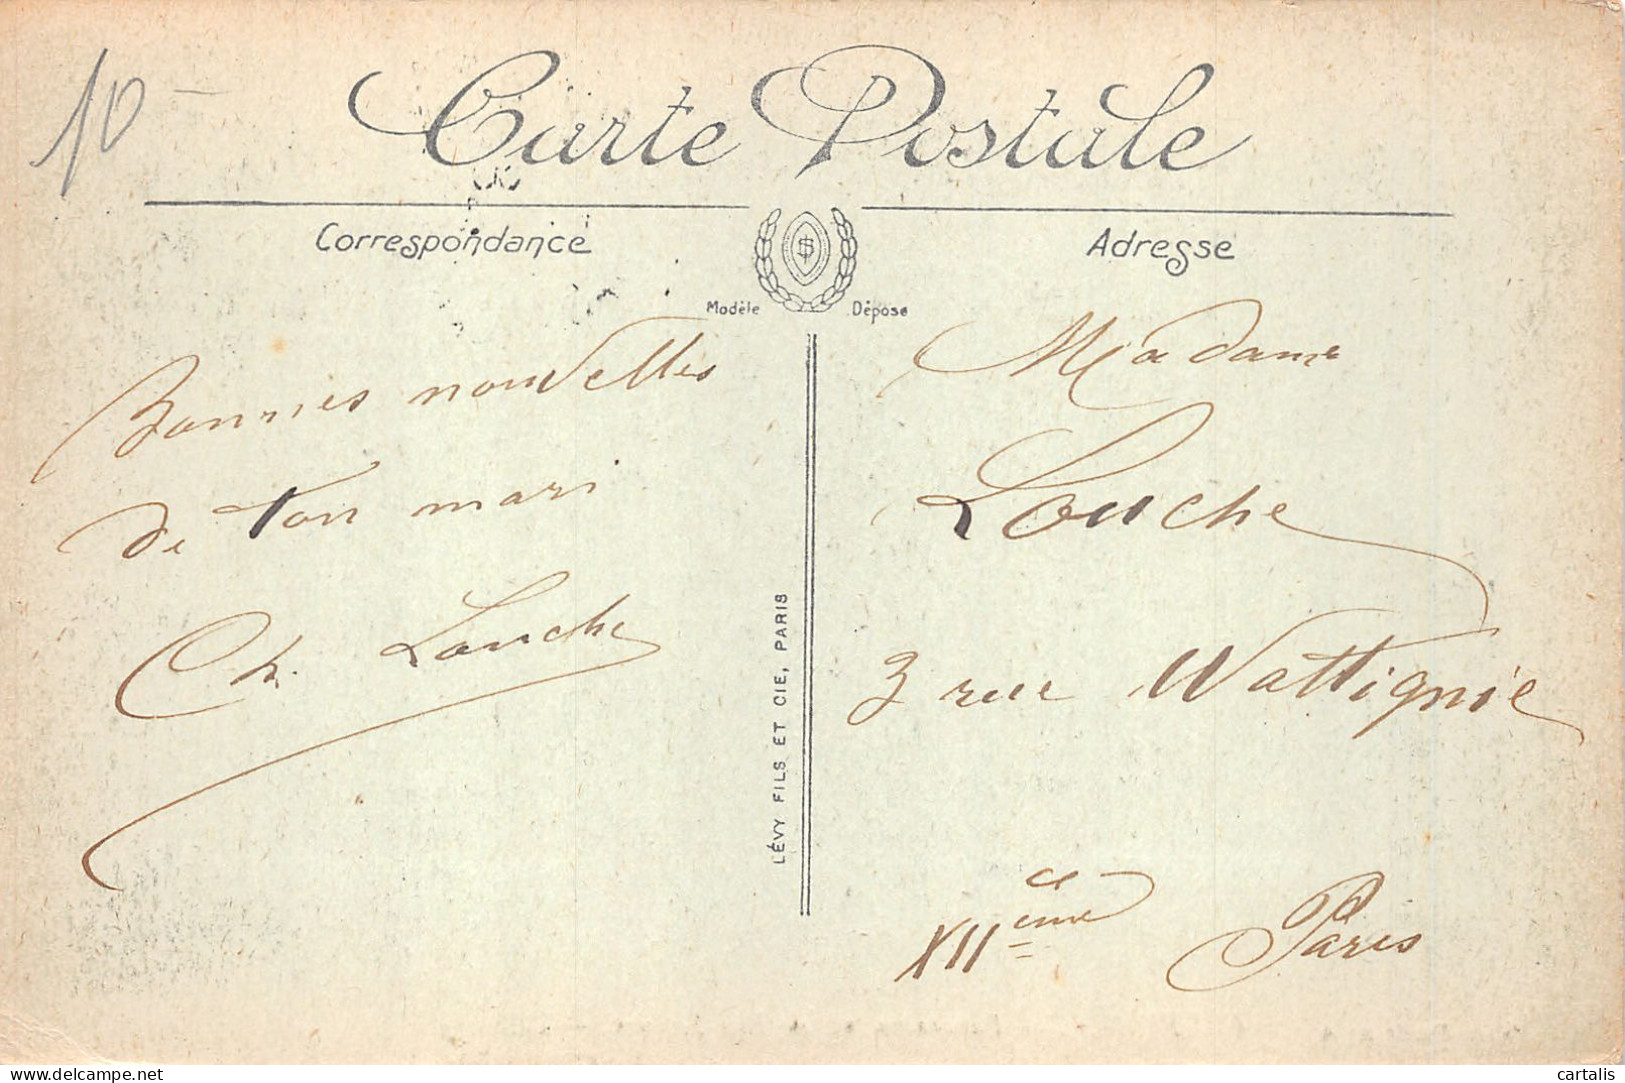 10 -
Carte Postale
Correspondance
Adresse
Modèle Déposé
Bonnes nouvelles
de ton mari
Ch. Louche
LÉVY FILS ET CIE, PARIS
Madame
Louche
3 rue Wattignie
XIIème Paris
www.delcampe.net
cartalis